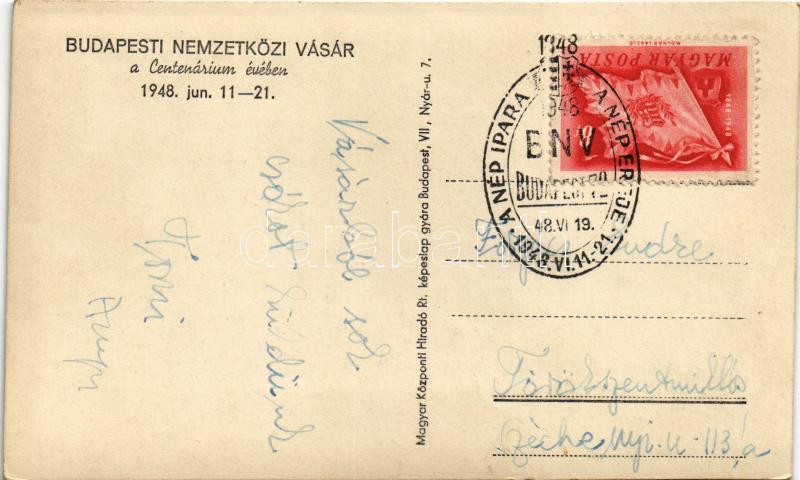 BUDAPESTI NEMZETKÖZI VÁSÁR
a Centenárium évében
1948. jun. 11—21.
Vásárból sok
csókot küldünk
Magyar Központi Híradó Rt. képeslap gyára Budapest, VII., Nyár-u. 7.
MOLNÁR LÁSZLÓ
MAGYAR POSTA
1848-1948
1948
1948
A NÉP IPARA A NÉP EREJE.
BNV
BUDAPEST 72
48.VI 19.
1948.VI.11-21.
Endre
Törökszentmiklós
Széchenyi-u-113/a
darabanth.com